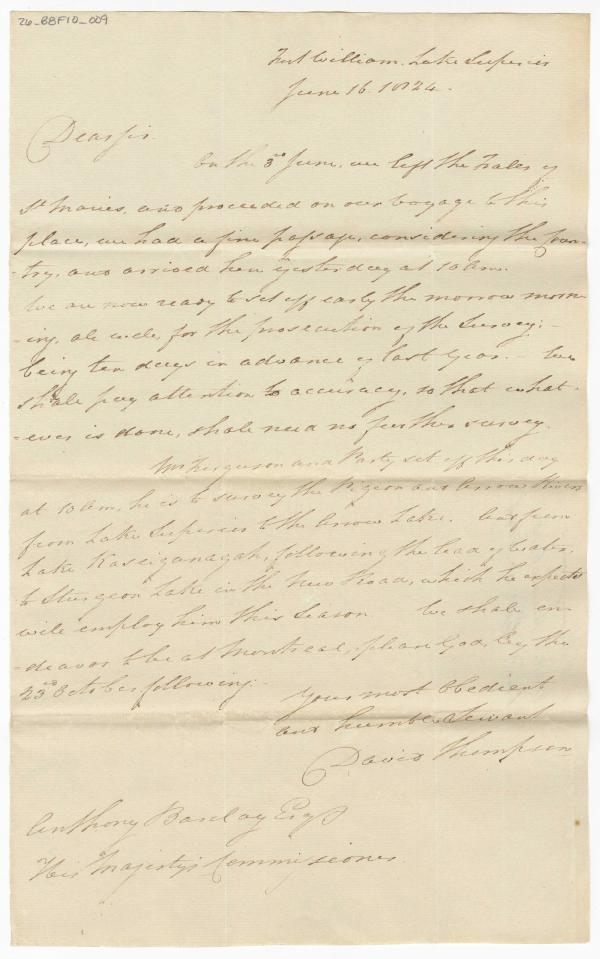 26_BBF10_009
Fort William. Lake Superior
June 16 1824.
Dear Sir
On the 3rd June, we left the Falls of
St Maries, and proceeded on our voyage to this
place, we had a fine passage, considering the Coun-
-try, and arrived here yesterday at 10 am.
We are now ready to set off early the morrow morn
-ing, all well, for the prosecution of the Survey:-
being ten days in advance of last Year. - We
shall pay attention to accuracy, so that what-
-ever is done, shall need no further survey.
Mr Ferguson and Party set off this day
at 10 am, he is to survey the Pigeon and Arrow Rivers
from Lake Superior to the Arrow Lake. And from
Lake Kaseiganagah, following the lead of Water,
to Sturgeon Lake in the New Road, which he expects
will employ him this Season. We shall en-
-deavor to be at Montreal, please God, by the
23rd October following.
Your most Obedient
and humble Servant
David Thompson
Anthony Barclay Esqr
His Majestys Commissioner